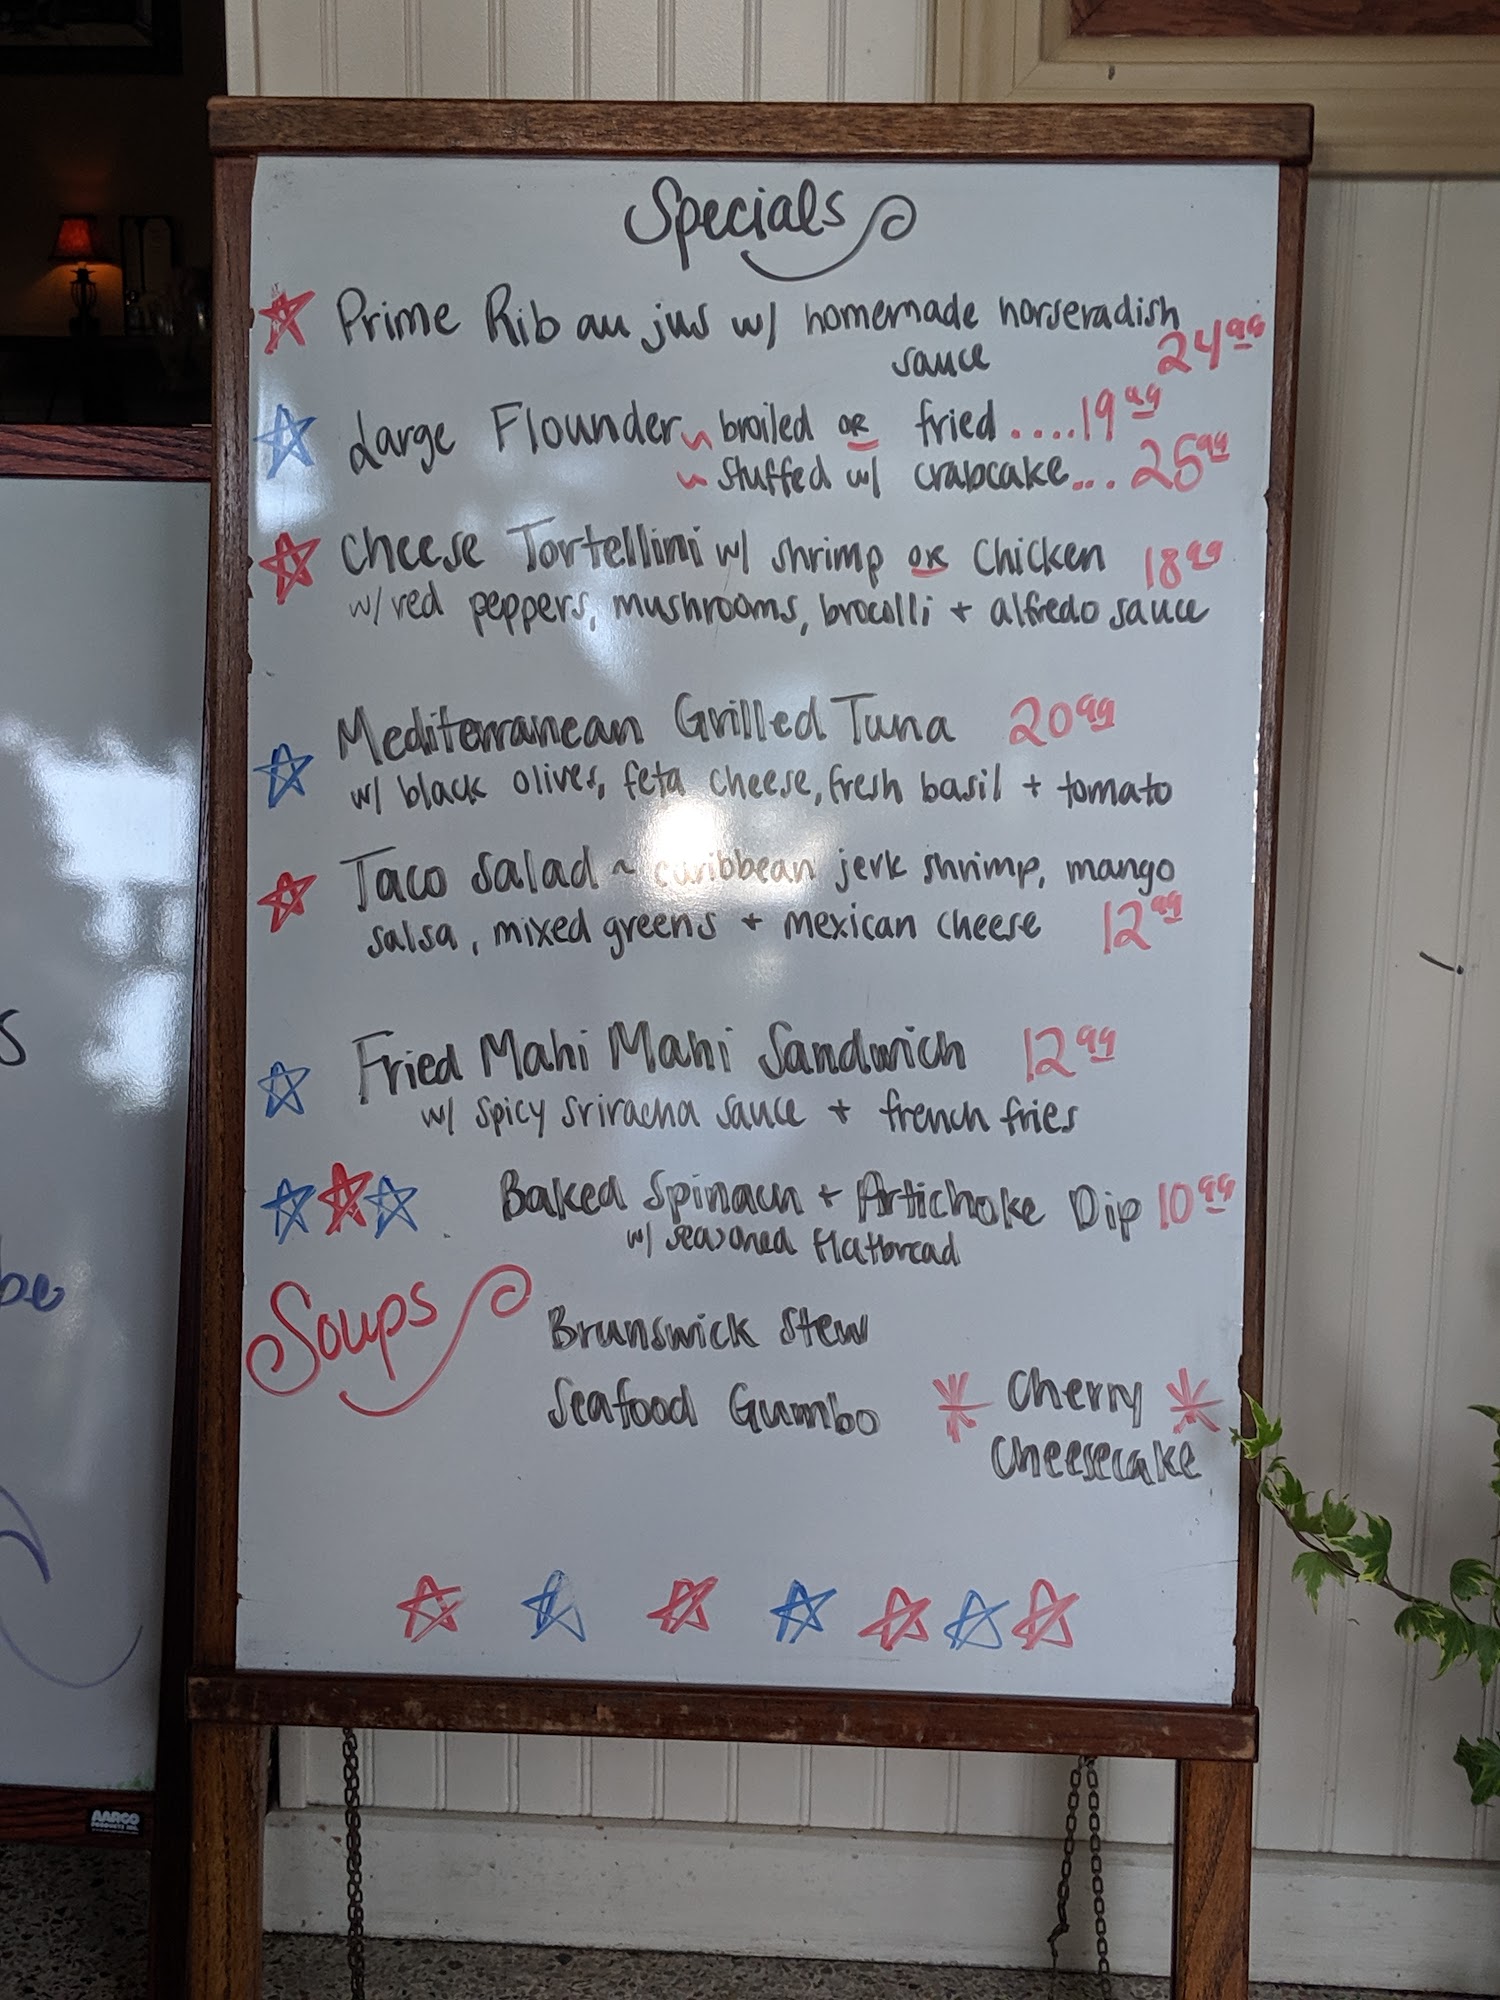 Specials
Prime Rib au jus w/ homemade horseradish
sauce 24.99
Large Flounder ~ broiled or fried ....19.99
~ stuffed w/ crabcake... 25.99
Cheese Tortellini w/ shrimp or Chicken 18.99
w/ red peppers, mushrooms, brocolli + alfredo sauce
Mediterranean Grilled Tuna 20.99
w/ black olives, feta cheese, fresh basil + tomato
Taco Salad ~ caribbean jerk shrimp, mango
salsa, mixed greens + mexican cheese 12.99
Fried Mahi Mahi Sandwich 12.99
w/ spicy sriracha sauce + french fries
Baked Spinach + Artichoke Dip 10.99
w/ seasoned flatbread
Soups
Brunswick Stew
Seafood Gumbo
Cherry
Cheesecake
s
be
AARCO
PRODUCTS INC.